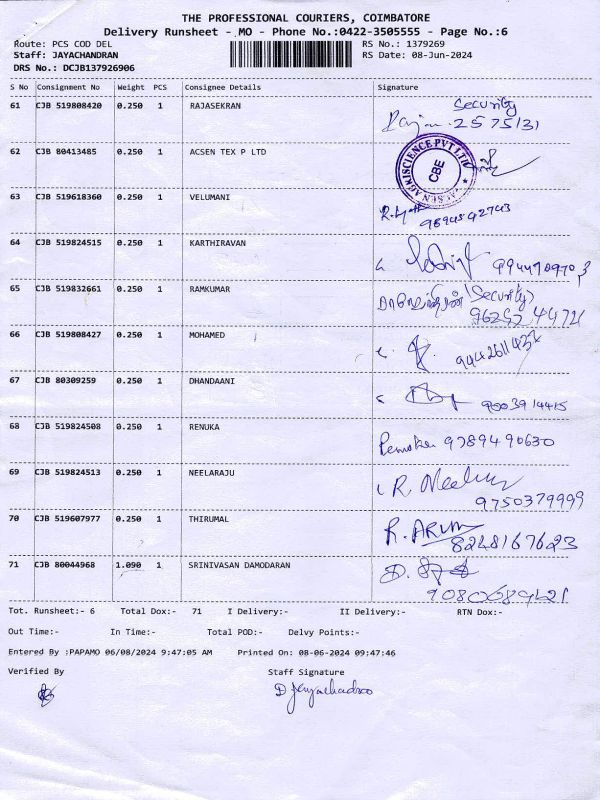 THE PROFESSIONAL COURIERS, COIMBATORE
Delivery Runsheet - MO - Phone No.:0422-3505555 - Page No.:6
Route: PCS COD DEL RS No.: 1379269
Staff: JAYACHANDRAN RS Date: 08-Jun-2024
DRS No.: DCJB137926906
S No Consignment No Weight PCS Consignee Details Signature
61 CJB 519808420 0.250 1 RAJASEKRAN Security
2575131
62 CJB 80413485 0.250 1 ACSEN TEX P LTD ACSEN AGRISCIENCE PVT LTD CBE
63 CJB 519618360 0.250 1 VELUMANI
9894542743
64 CJB 519824515 0.250 1 KARTHIRAVAN
65 CJB 519832661 0.250 1 RAMKUMAR (Security)
66 CJB 519808427 0.250 1 MOHAMED
67 CJB 80309259 0.250 1 DHANDAANI
9003914415
68 CJB 519824508 0.250 1 RENUKA
9789490630
69 CJB 519824513 0.250 1 NEELARAJU R.
9750379999
70 CJB 519607977 0.250 1 THIRUMAL R. ARUN
8248167623
71 CJB 80044968 1.090 1 SRINIVASAN DAMODARAN
Tot. Runsheet:- 6 Total Dox:- 71 I Delivery:- II Delivery:- RTN Dox:-
Out Time:- In Time:- Total POD:- Delvy Points:-
Entered By :PAPAMO 06/08/2024 9:47:05 AM Printed On: 08-06-2024 09:47:46
Verified By Staff Signature